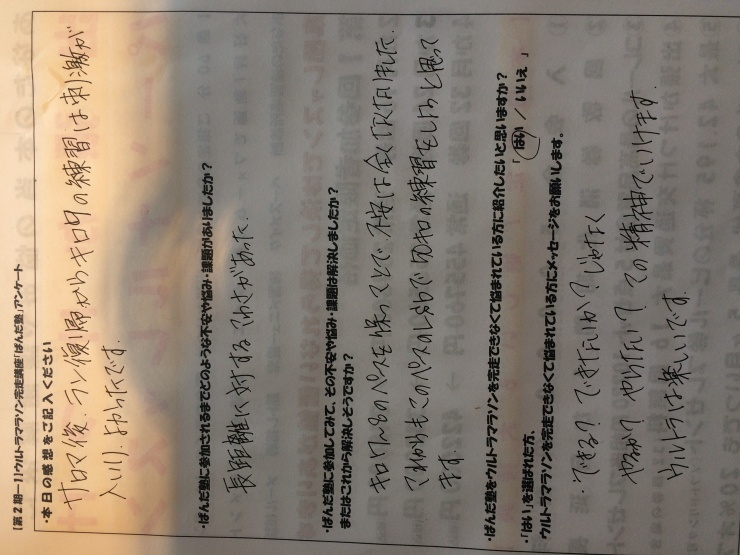 【第2期-1】ウルトラマラソン完走講座「ぱんだ塾」アンケート
・本日の感想をご記入ください
サロマ後、ラン復帰からキロ7の練習は刺激が
入り、よかったです。
・ぱんだ塾に参加されるまでどのような不安や悩み・課題がありましたか?
長距離に対するこわさがあった。
・ぱんだ塾に参加してみて、その不安や悩み・課題は解決しましたか?
またはこれから解決しそうですか?
キロ7~8のパスを使ってことで、不安は全くなくなりました。
これからもこのパスのしかたで50キロの練習をしようと思って
ます。
・ぱんだ塾をウルトラマラソンを完走できなくて悩まれている方に紹介したいと思いますか?
「 はい / いいえ 」
・「はい」を選ばれた方、
ウルトラマラソンを完走できなくて悩まれている方にメッセージをお願いします。
・できる?できないか?じゃなく
やるか?やらないか?の精神でいけます。
ウルトラは楽しいです。